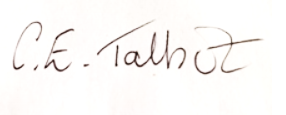 C.E. Talbot